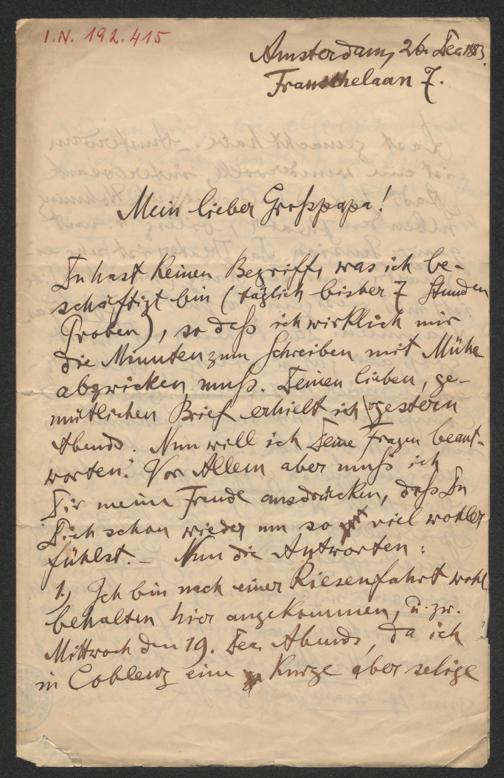 I.N. 192.415
Amsterdam, 26. Dec. 1883.
Franschelaan 7.
Mein lieber Grosspapa!
Du hast keinen Begriff, was ich be-
schäftigt bin (täglich bisher 7 Stunden
Proben), so dass ich wirklich mir
die Minuten zum Schreiben mit Mühe
abzwicken muss. Deinen lieben, ge-
mütlichen Brief erhielt ich gestern
Abends. Nun will ich Deine Fragen beant-
worten. Vor Allem aber muss ich
Dir meine Freude ausdrücken, dass Du
Dich schon wieder um so viel wohler
fühlst. – Nun die Antworten:
1, Ich bin nach einer Riesenfahrt wohl
behalten hier angekommen, u. zw.
Mittwoch den 19. Dec. Abends, da ich
in Coblenz eine kurze aber selige